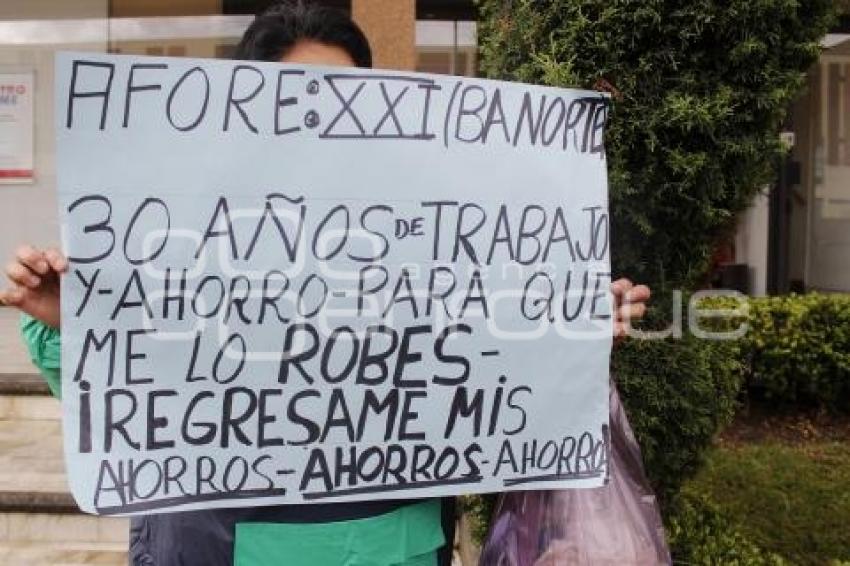 AFORE:XXI(BANORTE)
30 AÑOS DE TRABAJO
Y-AHORRO-PARA QUE
ME LO ROBES-
¡REGRESAME MIS
AHORROS-AHORROS-AHORRO
agencia